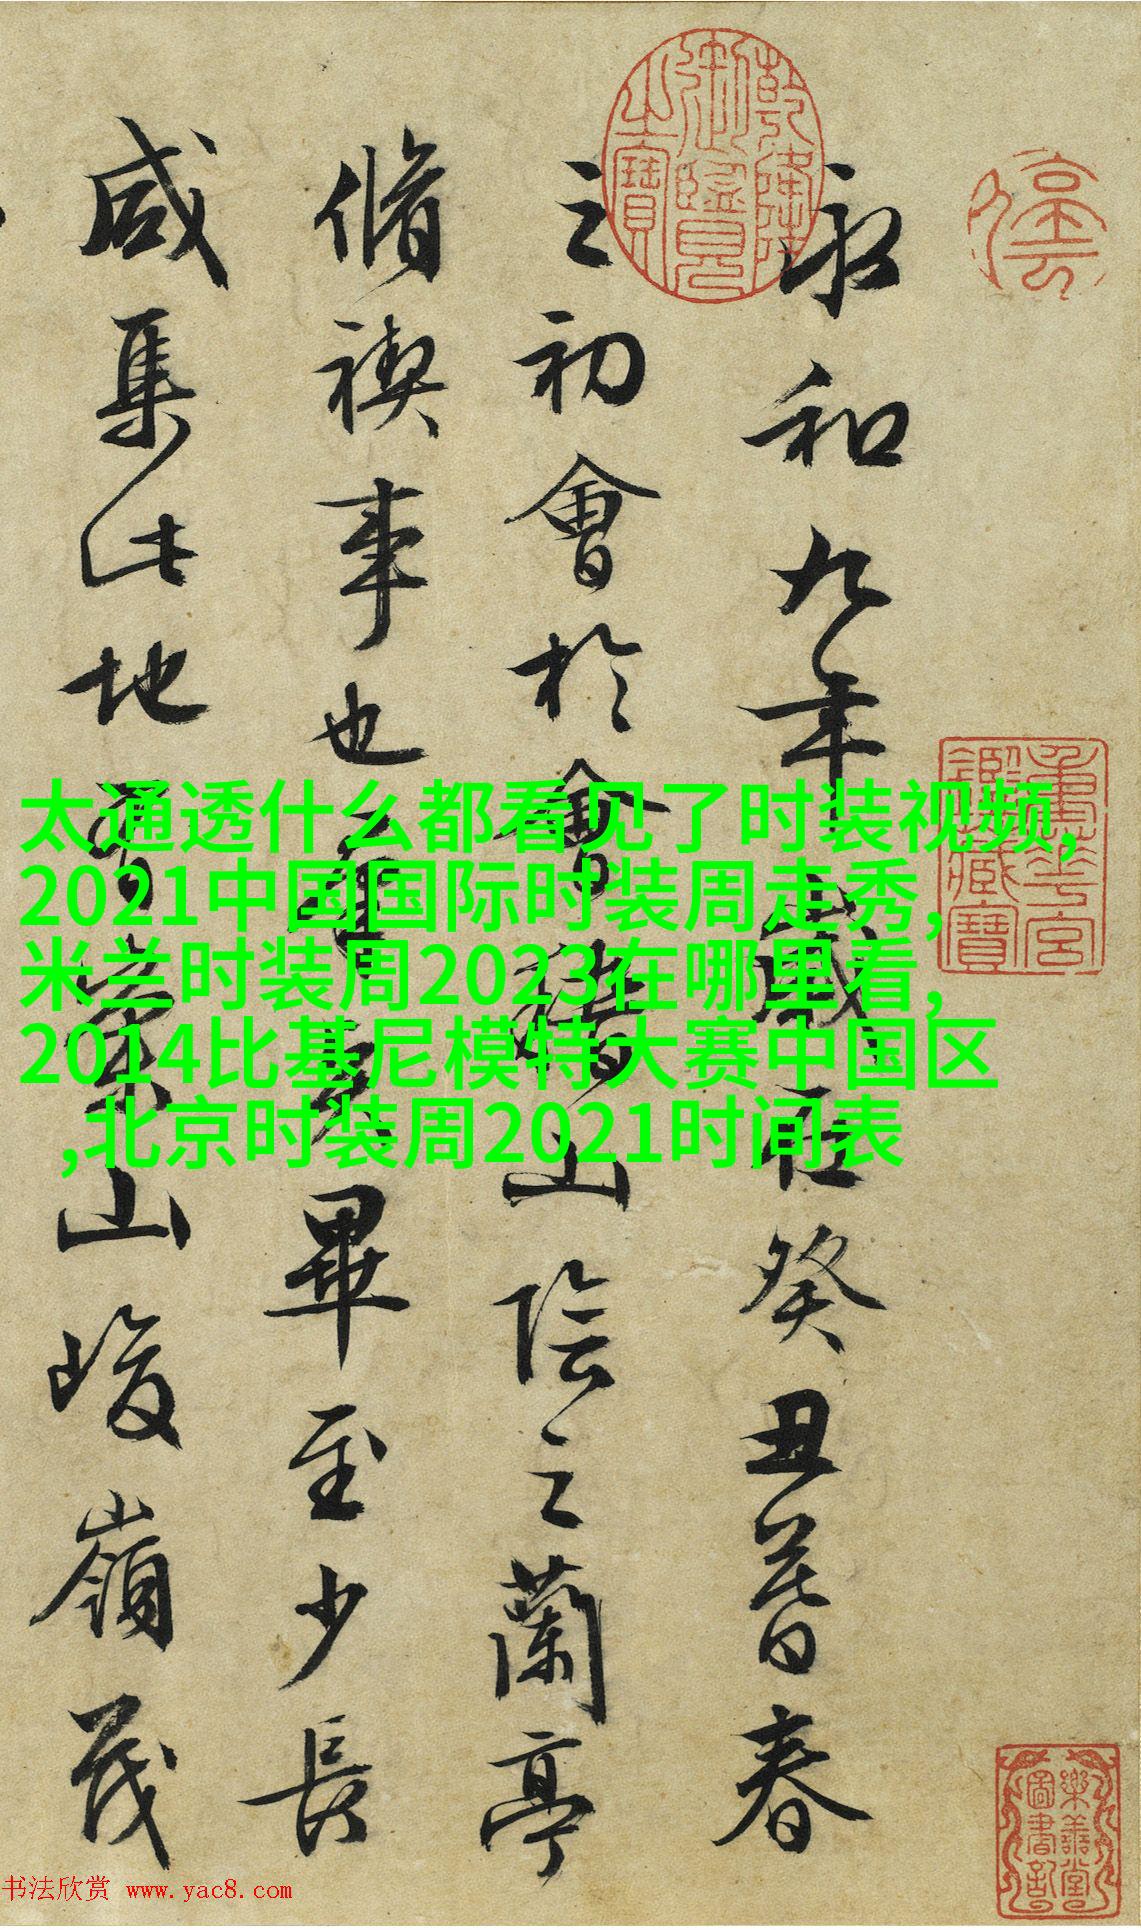 停雲
乾隆御覽之寶
永和九年歲在癸丑暮春
之初會於會稽山陰之蘭亭
脩禊事也羣賢畢至少長
咸集此地有崇山峻嶺茂
重華宮鑑藏寶
樂善堂圖書記
太通透什么都看见了时装视频,
2021中国国际时装周走秀,
米兰时装周2023在哪里看,
2014比基尼模特大赛中国区
,北京时装周2021时间表
书法欣赏 www.yac8.com